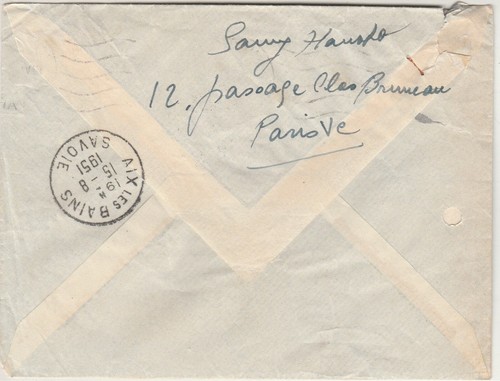 Samy
12, passage Clos Bruneau
Paris Ve
AIX LES BAINS
19H
15 - 8
1951
SAVOIE